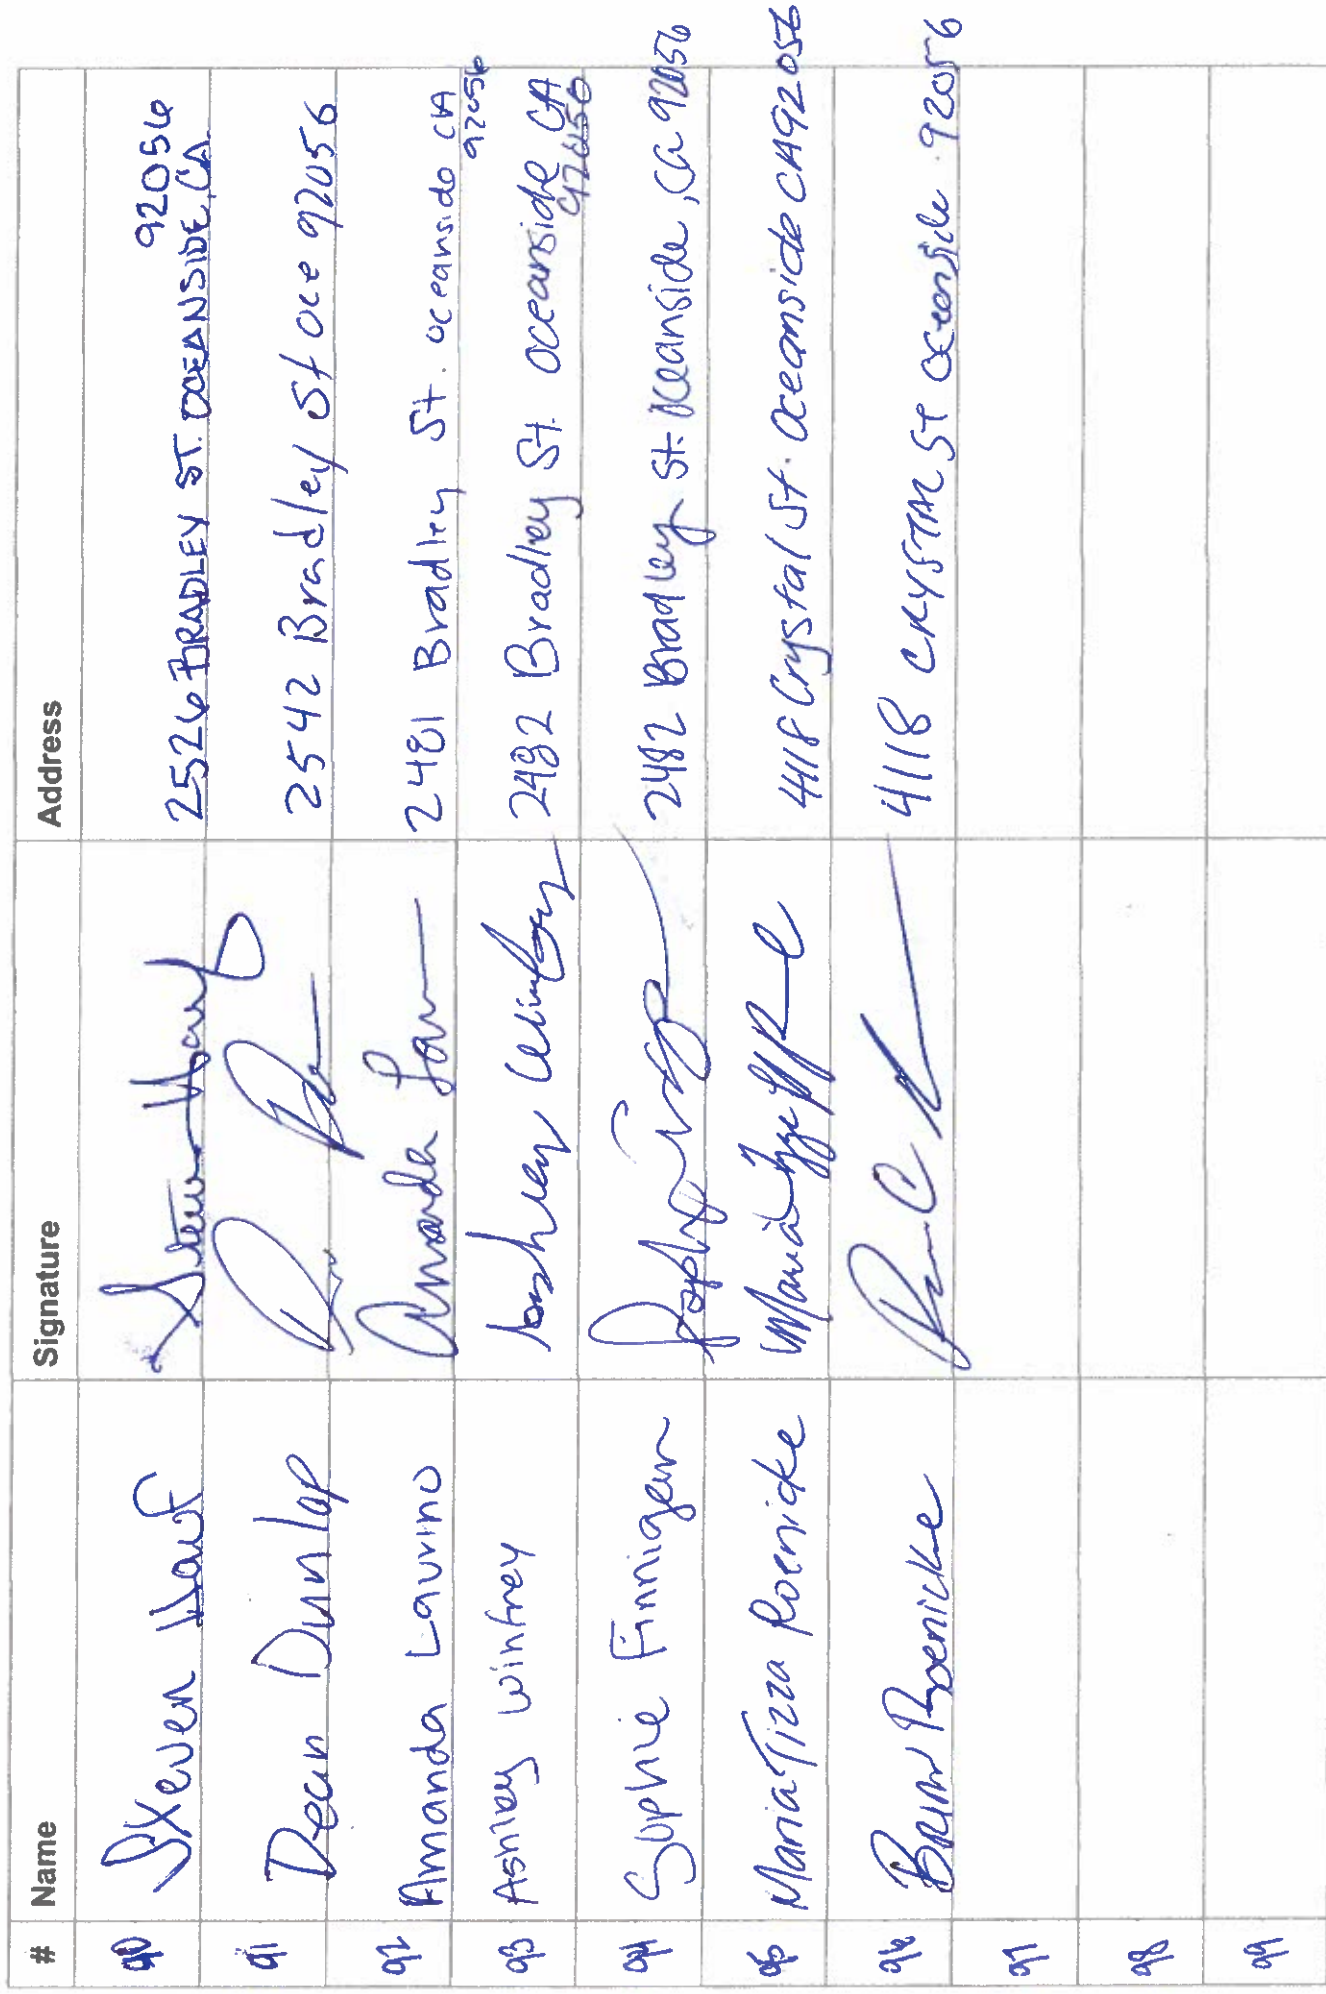 # Name Signature Address
90 Steven Hauf Steven Hauf 2526 BRADLEY ST. OCEANSIDE, CA. 92056
91 Dean Dunlap 2542 Bradley St oce 92056
92 Amanda Laurino Amanda Lau 2481 Bradley St. oceanside CA 92056
93 Ashley Winfrey Ashley Winfrey 2482 Bradley St. Oceanside CA 92056
94 Sophie Finnigan 2482 Bradley St. Oceanside, Ca 92056
95 Maria Tizza Roenicke 4418 Crystal St. Oceanside CA 92056
96 Brian Roenicke 4118 CRYSTAL ST Oceanside 92056
97
98
99